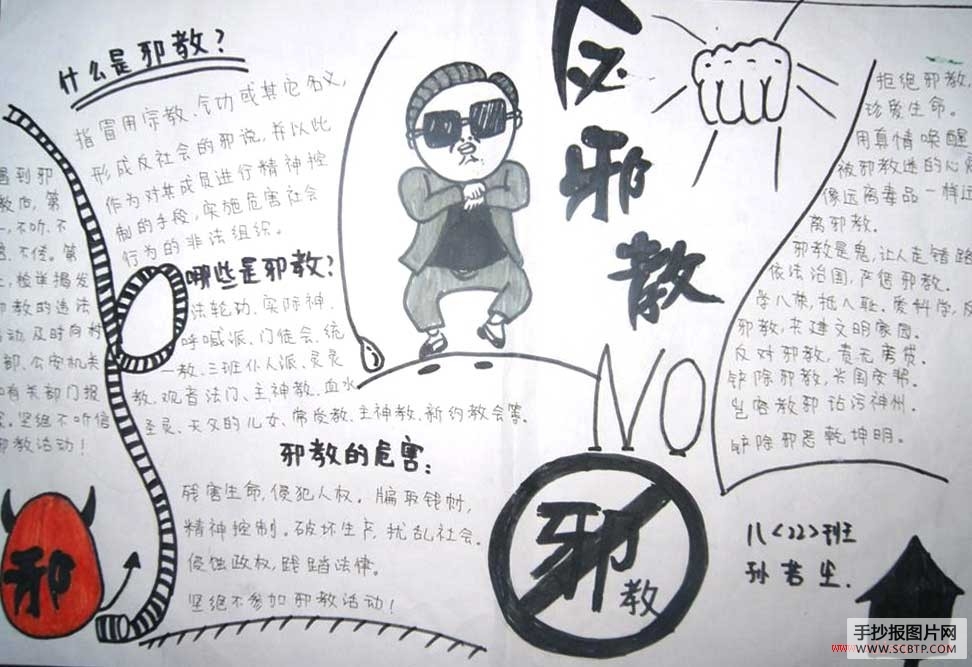 什么是邪教？
指冒用宗教、气功或其它名义，
形成反社会的邪说，并以此
作为对其成员进行精神控
制的手段，实施危害社会
行为的非法组织。
遇到邪
教后，第
一，不听、不
信、不传。第
二，检举揭发
邪教的违法
活动及时向村
部、公安机关
和有关部门报
案。坚绝不听信
邪教活动！
哪些是邪教？
法轮功、实际神、
呼喊派、门徒会、统
一教、三班仆人派、灵灵
教、观音法门、主神教、血水
圣灵、天父的儿女、常受教、主神教、新约教会等。
邪教的危害：
残害生命，侵犯人权。骗取钱财，
精神控制。破坏生产，扰乱社会。
侵蚀政权，践踏法律。
坚绝不参加邪教活动！
邪
反邪教
NO
邪教
拒绝邪教，
珍爱生命。
用真情唤醒
被邪教迷的心
像远离毒品一样远
离邪教。
邪教是鬼，让人走错路
依法治国，严惩邪教。
学八荣，抵八耻。爱科学，反
邪教，共建文明家园。
反对邪教，责无旁贷。
铲除邪教，兴国安邦。
岂容教邪玷污神州。
铲除邪恶乾坤明。
八<22>班
孙若尘.
手抄报图片网
WWW.SCBTP.COM